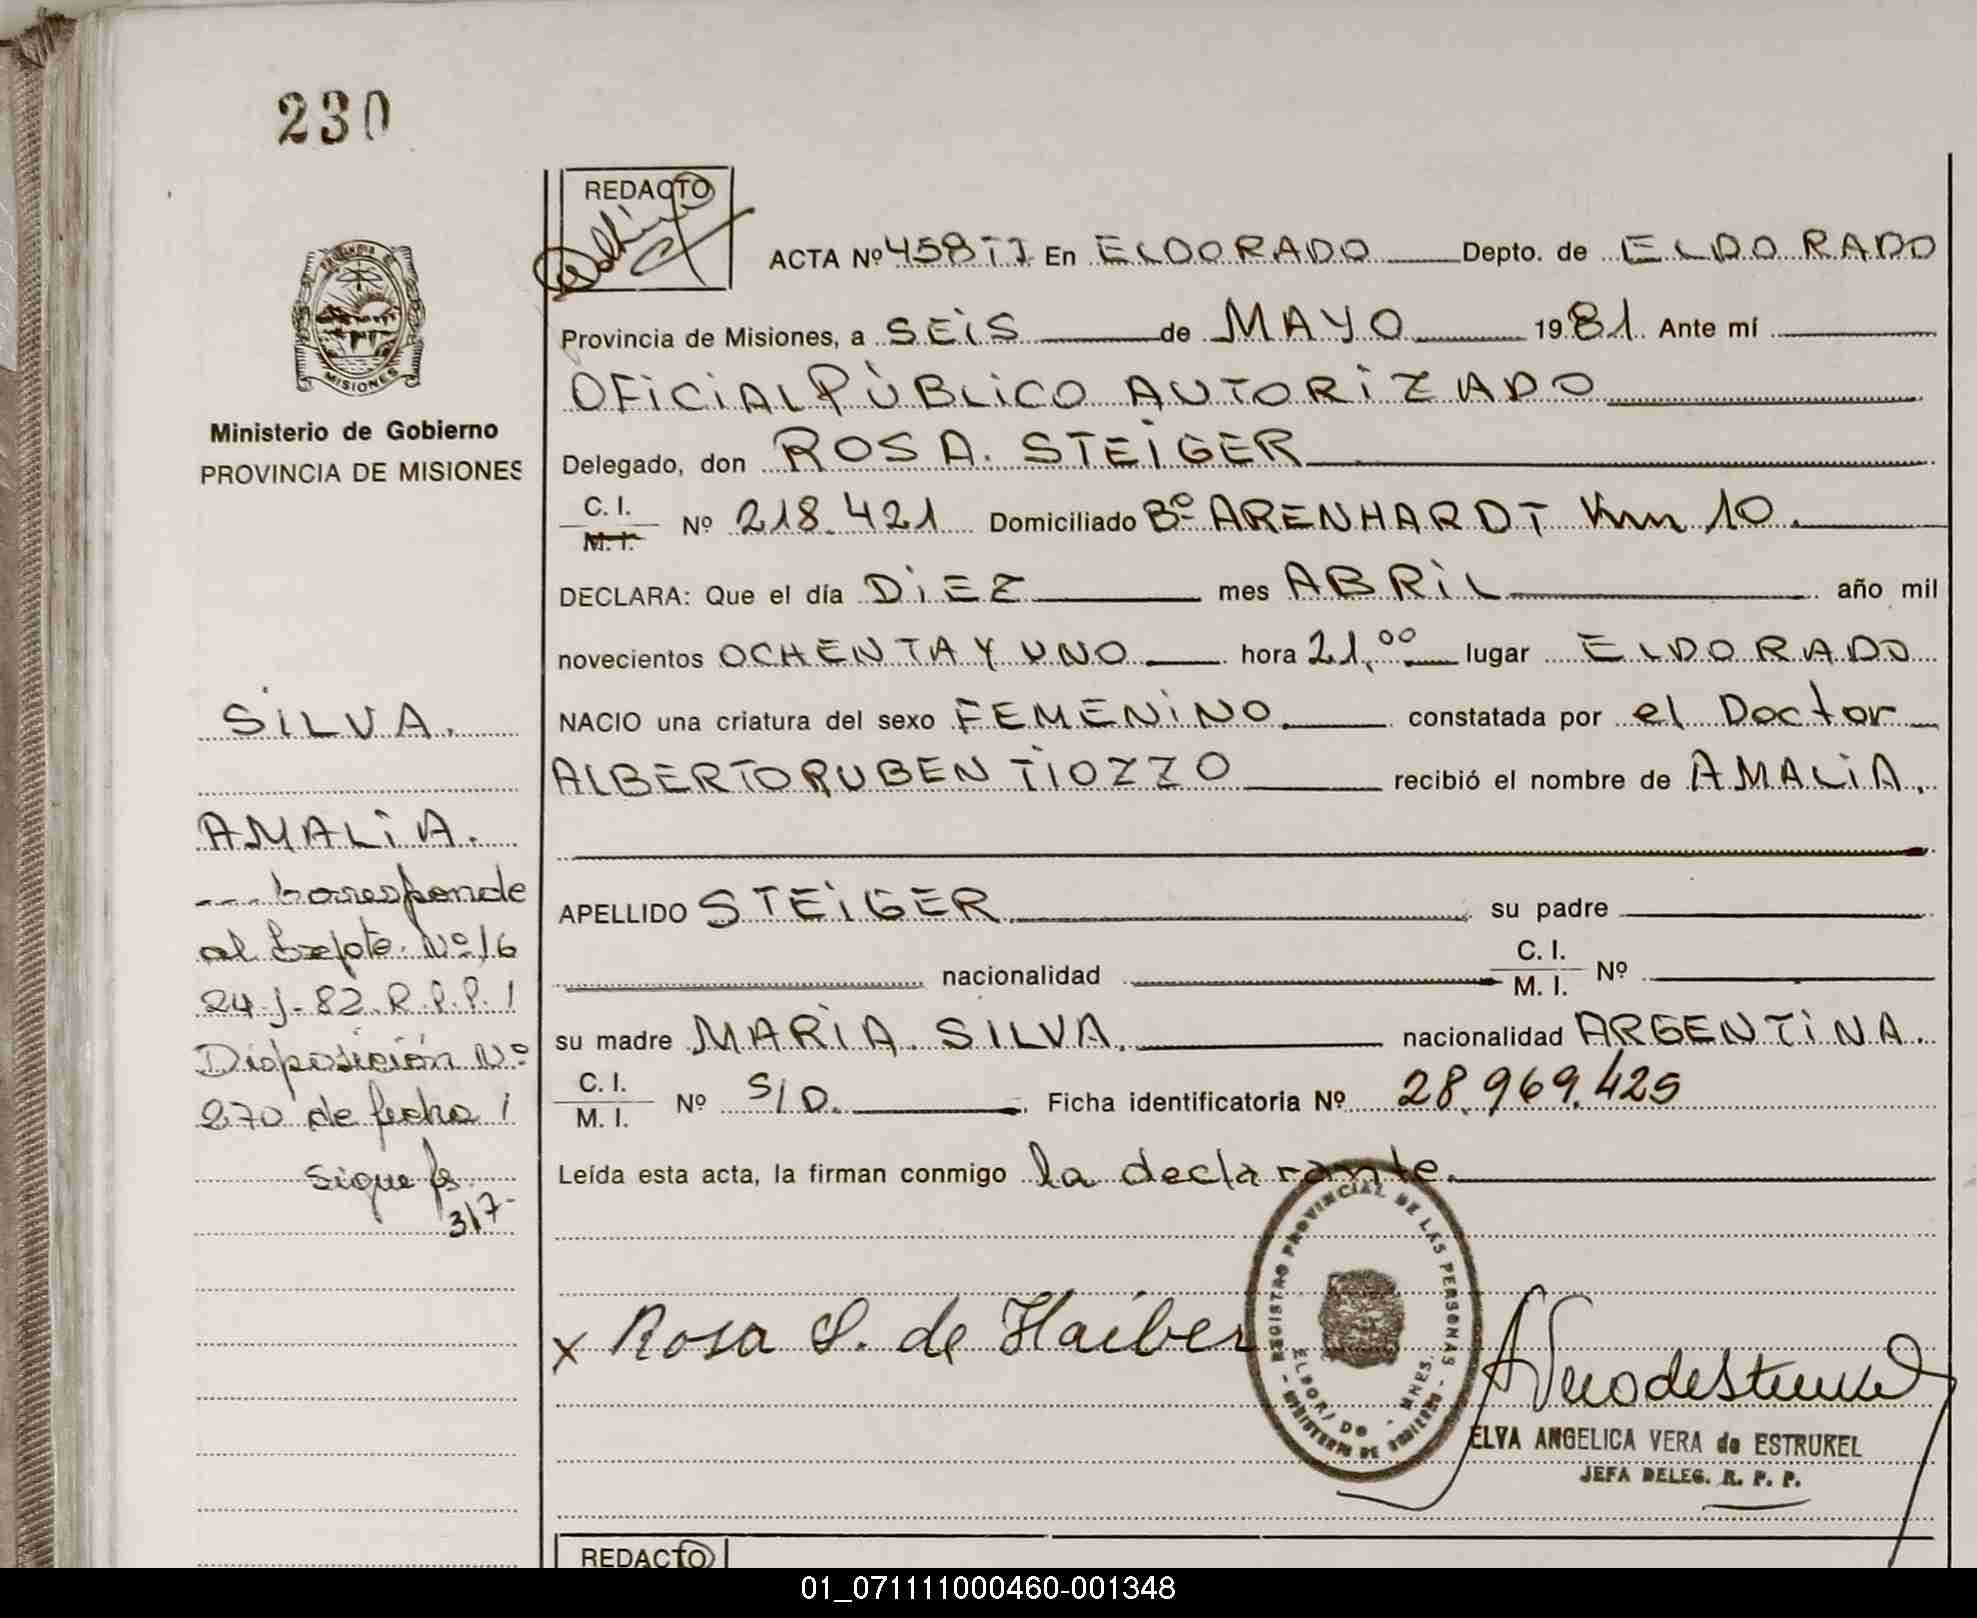 230
REDACTO
ACTA Nº 458 TI En ELDORADO Depto. de ELDORADO
Provincia de Misiones, a SEiS de MAYO 1981. Ante mí
OFiCiAL PÚBLiCO AUTORiZADO
Delegado, don ROSA. STEiGER
C. I.
M. I.
Nº 218.421 Domiciliado Bº ARENHARDT Km 10.
DECLARA: Que el día DiEZ mes ABRiL año mil
novecientos OCHENTA Y UNO hora 21,00 lugar ELDORADO
NACIO una criatura del sexo FEMENiNO. constatada por el Doctor
ALBERTO RUBEN TIOZZO recibió el nombre de AMALiA.
APELLIDO STEiGER su padre
nacionalidad C. I.
M. I. Nº
su madre MARÌA SILVA. nacionalidad ARGENTiNA.
C. I.
M. I.
Nº S/D. Ficha identificatoria Nº 28.969.425
Leída esta acta, la firman conmigo la declarante.
x Rosa S. de Haiber
REGISTRO PROVINCIAL DE LAS PERSONAS
- MINISTERIO DE GOBIERNO -
ELDORADO - MNES.
ELVA ANGELICA VERA de ESTRUKEL
JEFA DELEG. R. P. P.
REDACTO
MISIONES
Ministerio de Gobierno
PROVINCIA DE MISIONES
SiLVA.
AMALiA.
--- Corresponde
al Expte. Nº 16
24-J-82 R.P.P. /
Disposición Nº
270 de fecha /
Sigue fs.
317-
01_071111000460-001348